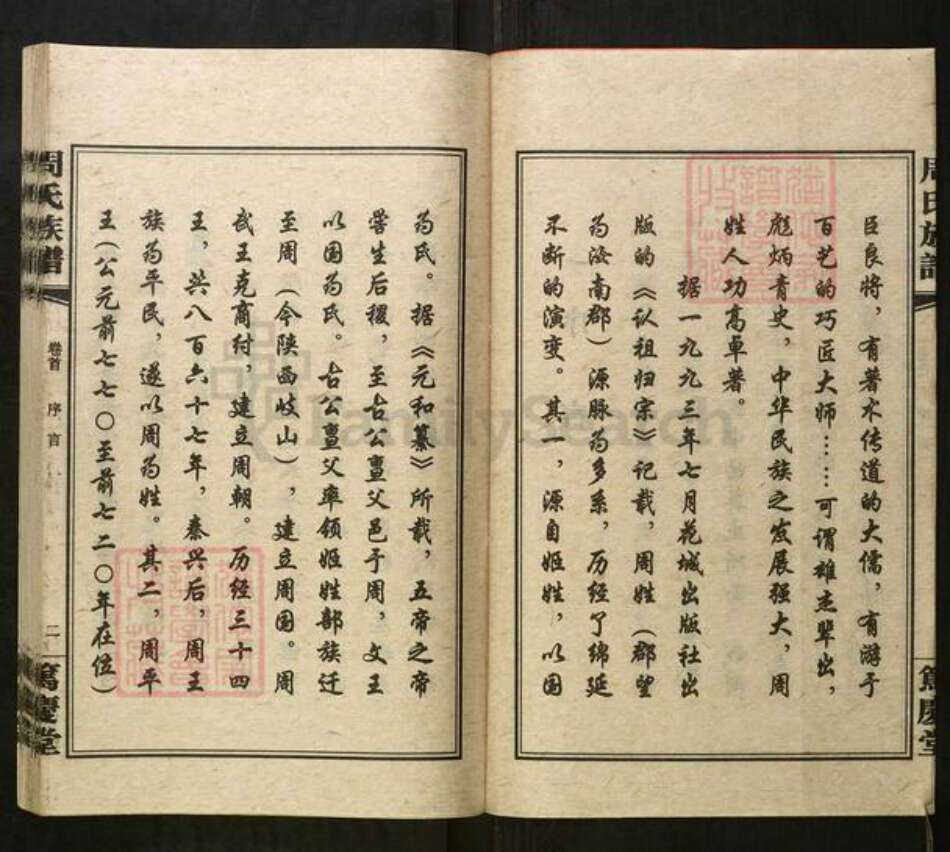 周氏族谱
臣良将，有著本传道的大儒，有游于
百艺的巧匠大师……可谓雄杰辈出，
彪炳青史，中华民族之发展强大，周
姓人功高卓著。
据一九九三年七月花城出版社出
版的《认祖归宗》记载，周姓（郡望
为汝南郡）源脉为多系，历经了绵延
不断的演变。其一，源自姬姓，以国
篤慶堂
为氏。据《元和纂》所载，五帝之帝
喾生后稷，至古公亶父邑于周，文王
以国为氏。古公亶父率领姬姓部族迁
至周（今陕西岐山），建立周国。周
武王克商纣，建立周朝。历经三十四
王，共八百六十七年，秦兴后，周王
族为平民，遂以周为姓。其二，周平
王（公元前七七〇至前七二〇年在位）
周氏族譜
卷首 序言
二
篤慶堂
FamilySearch